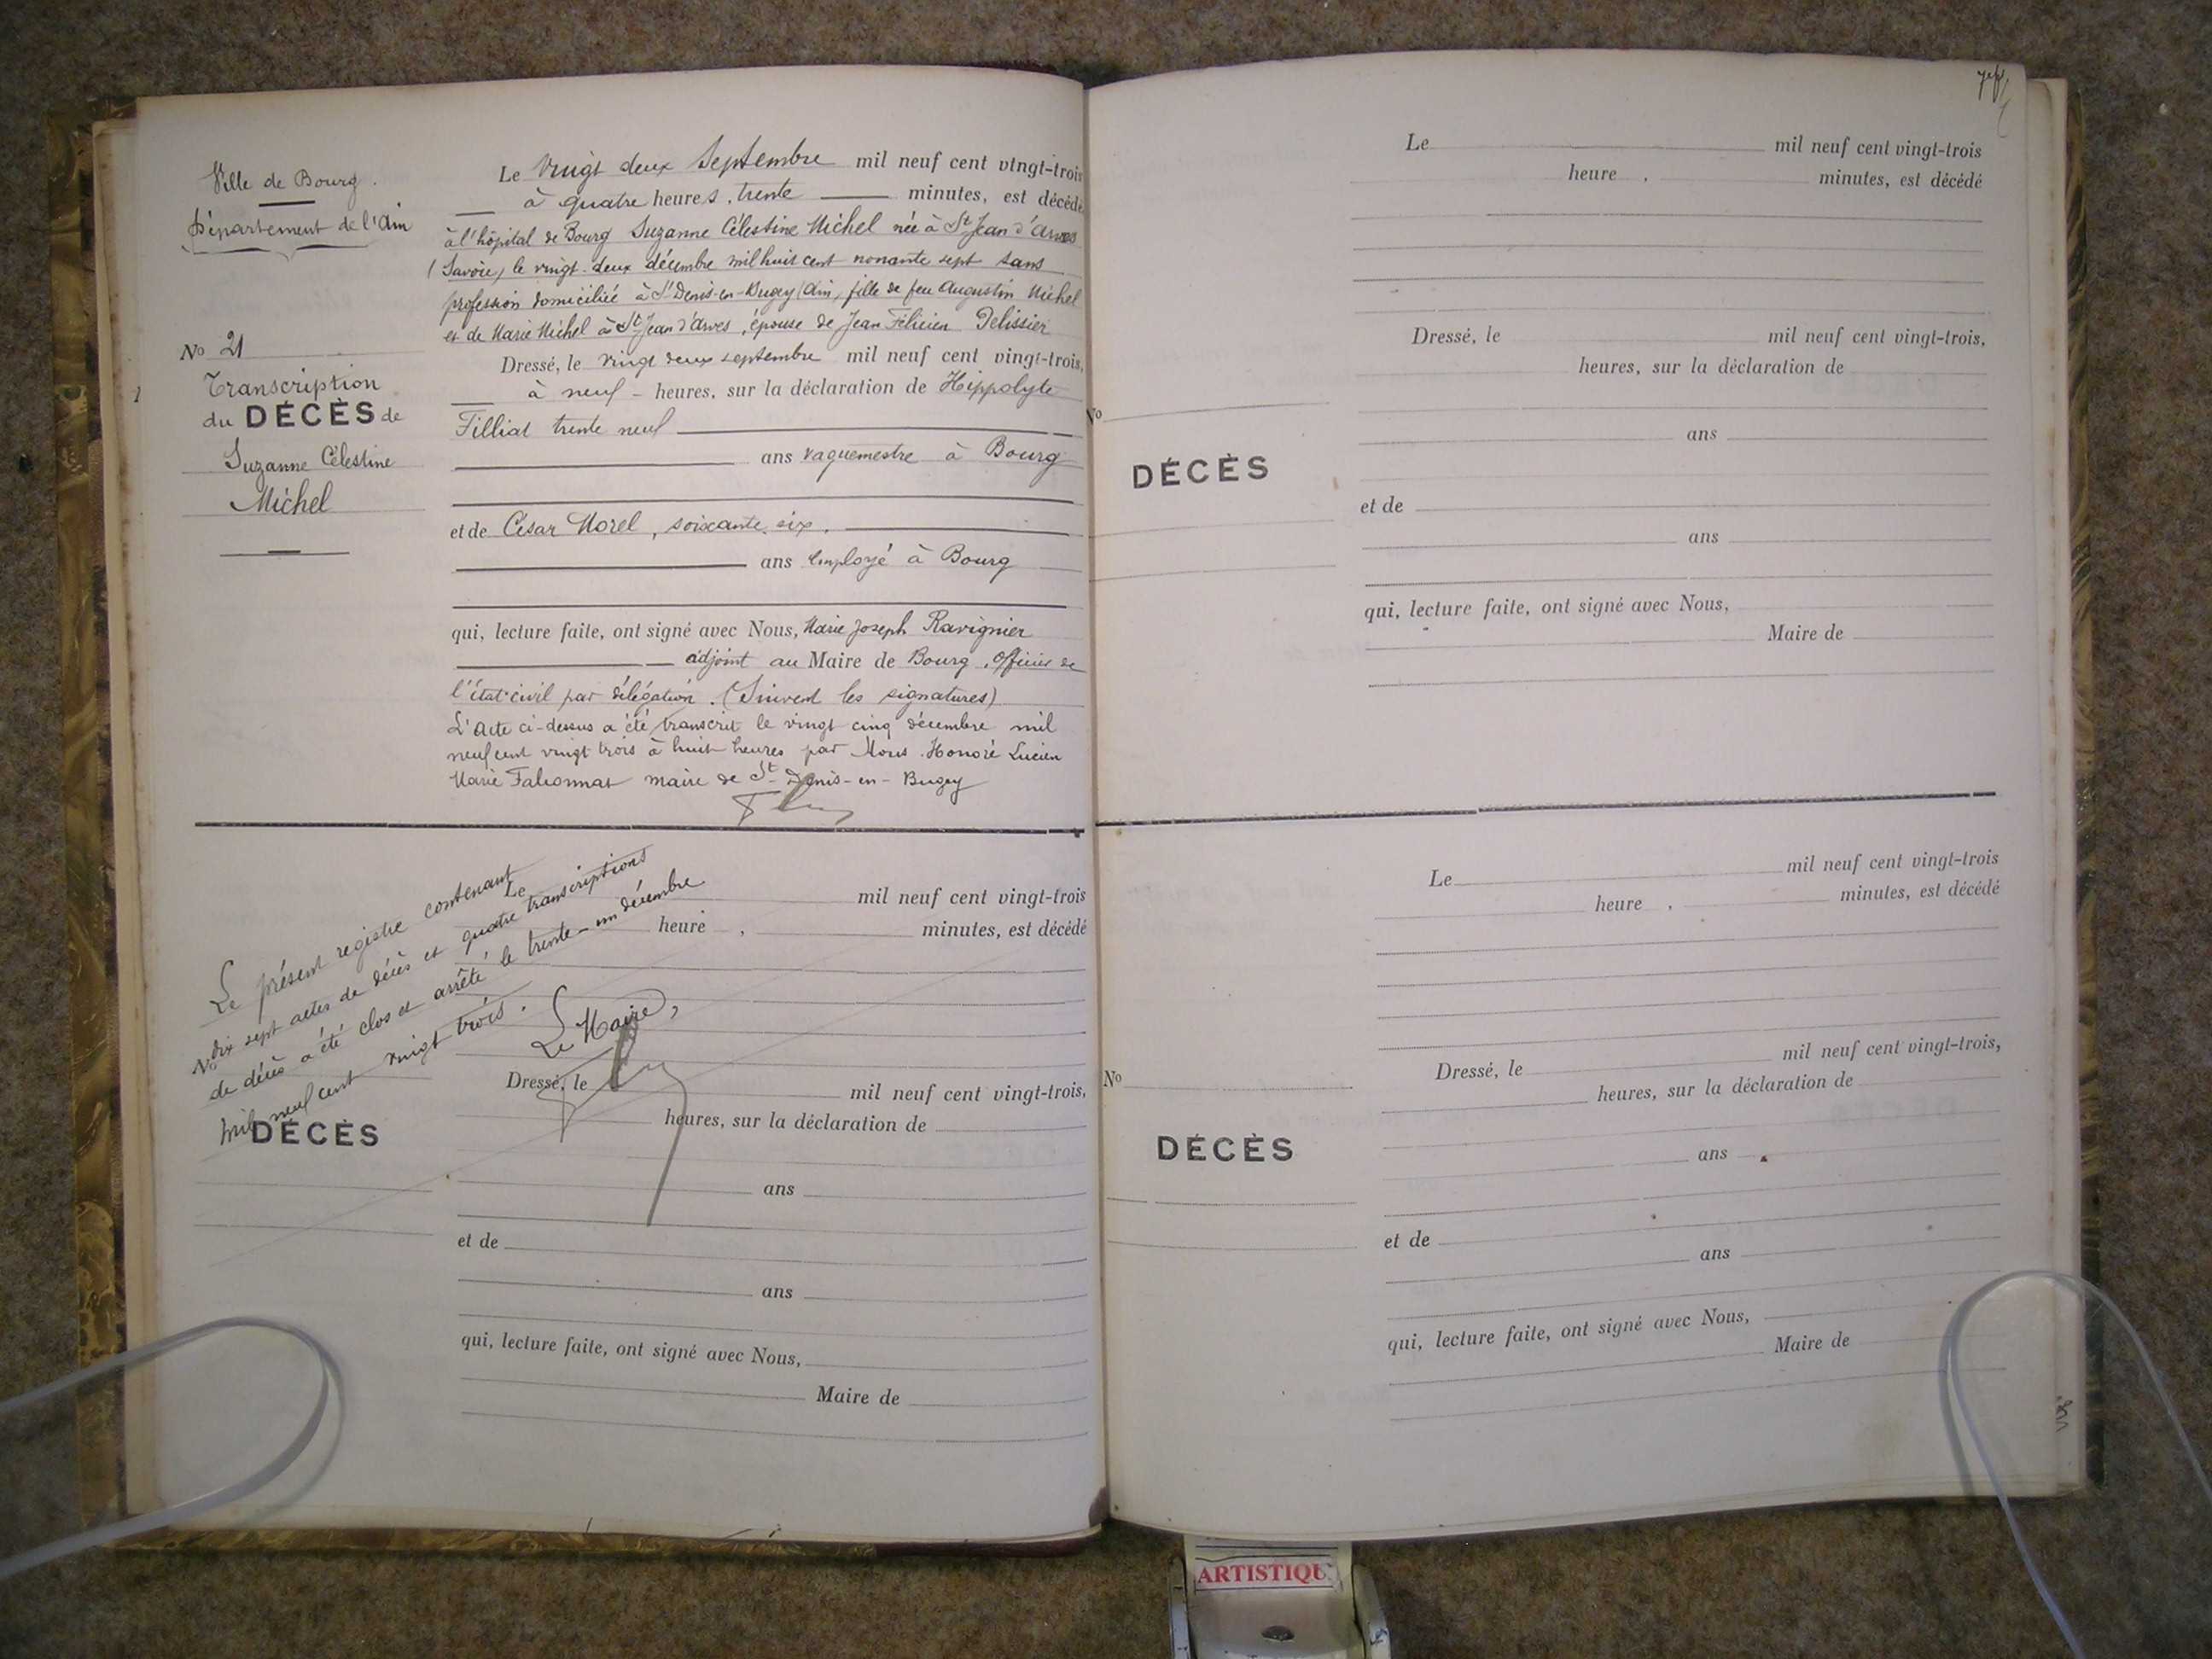 Ville de Bourg.
Département de l'Ain
No 21
Transcription
du DÉCÈS de
Suzanne Célestine
Michel
Le vingt deux Septembre mil neuf cent vingt-trois
à quatre heures, trente minutes, est décédé
à l'hôpital de Bourg Suzanne Célestine Michel née à St Jean d'Arves
(Savoie) le vingt-deux décembre mil huit cent nonante sept sans
profession domiciliée à St Denis-en-Bugey (Ain, fille de feu Augustin Michel
et de Marie Michel à St Jean d'Arves, épouse de Jean Félicien Pelissier
Dressé, le vingt deux septembre mil neuf cent vingt-trois,
à neuf - heures, sur la déclaration de Hippolyte
Filliat trente neuf
ans vaguemestre à Bourg
et de César Morel, soixante six,
ans employé à Bourg
qui, lecture faite, ont signé avec Nous, Marie Joseph Ravignier
adjoint au Maire de Bourg, officier de
l'état civil par délégation. (Suivent les signatures)
L'Acte ci-dessus a été transcrit le vingt cinq décembre mil
neuf cent vingt trois à huit heures par Nous Honoré Lucien
Marie Falconnat maire de St Denis-en-Bugey
Le présent registre contenant
dix sept actes de décès et quatre transcriptions
de décès a été clos et arrêté le trente-un décembre
mil neuf cent vingt trois.
Le Maire,
Le mil neuf cent vingt-trois
heure , minutes, est décédé
No
DÉCÈS
Dressé, le mil neuf cent vingt-trois,
heures, sur la déclaration de
ans
et de
ans
qui, lecture faite, ont signé avec Nous,
Maire de
Le mil neuf cent vingt-trois
heure , minutes, est décédé
Dressé, le mil neuf cent vingt-trois,
heures, sur la déclaration de
No
ans
DÉCÈS
et de
ans
qui, lecture faite, ont signé avec Nous,
Maire de
Le mil neuf cent vingt-trois
heure , minutes, est décédé
Dressé, le mil neuf cent vingt-trois,
No
heures, sur la déclaration de
DÉCÈS
ans
et de
ans
qui, lecture faite, ont signé avec Nous,
Maire de
ARTISTIQU